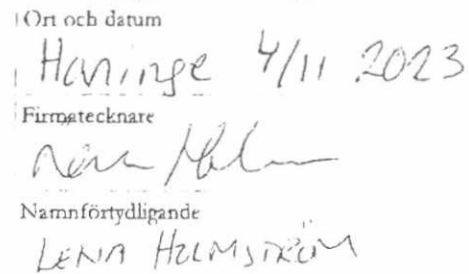 Ort och datum
Haninge 4/11 2023
Firmatecknare
Namnförtydligande
LENA HOLMSTRÖM